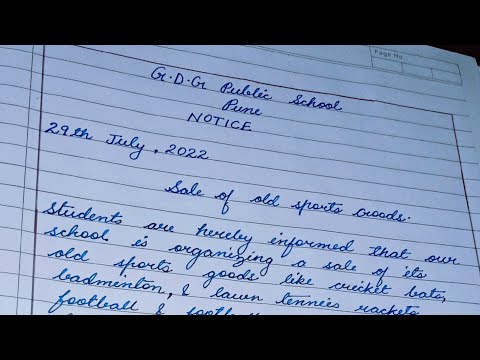 Page No
G.D.G Public School
Pune
NOTICE
29th July, 2022
Sale of old sports Goods.
Students are hereby informed that our
school is organizing a sale of its
old sports goods like cricket bats,
badminton, & lawn tennies rackets
football &